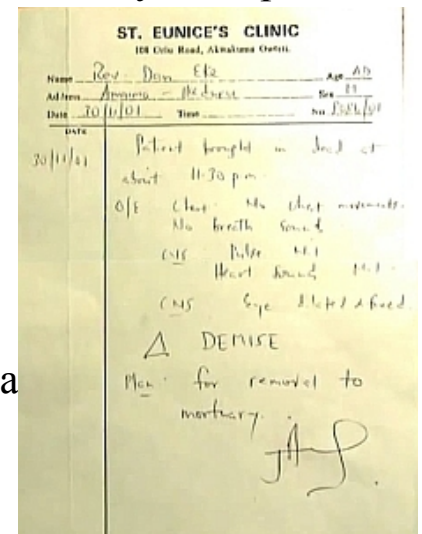 ST. EUNICE'S CLINIC
108 Orlu Road, Akwakuma Owerri.
Name Rev Dan Eke Age AD
Address Amauma - Iheduru Sex M
Date 30/11/01 Time No
DATE
30/11/01 Patient brought in dead at
about 11.30 pm.
O/E Chest No chest movements.
No breath sound
CVS Pulse Nil
Heart Sound Nil.
CNS Eye dilated & fixed.
△ DEMISE
a
Plan for removal to
mortuary.